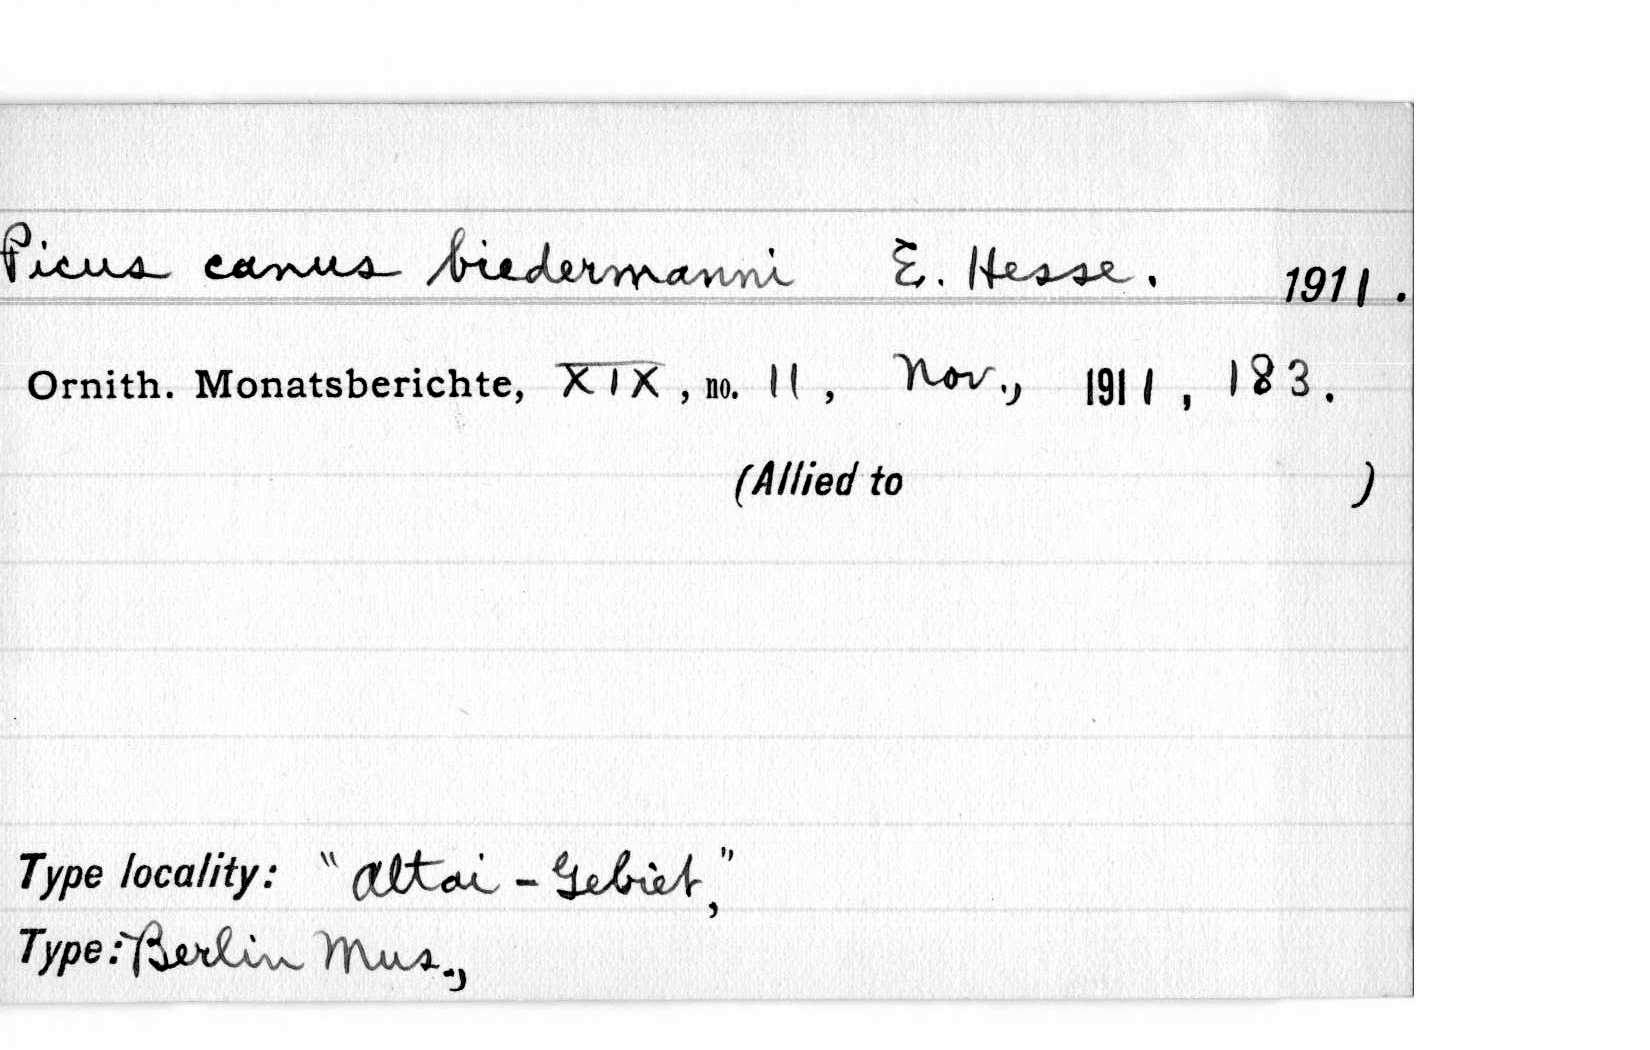 Picus canus biedermanni E. Hesse. 1911.
Ornith. Monatsberichte, XIX, no. 11, Nov., 1911, 183.
(Allied to )
Type locality: "Altai-Gebiet,"
Type: Berlin Mus.,